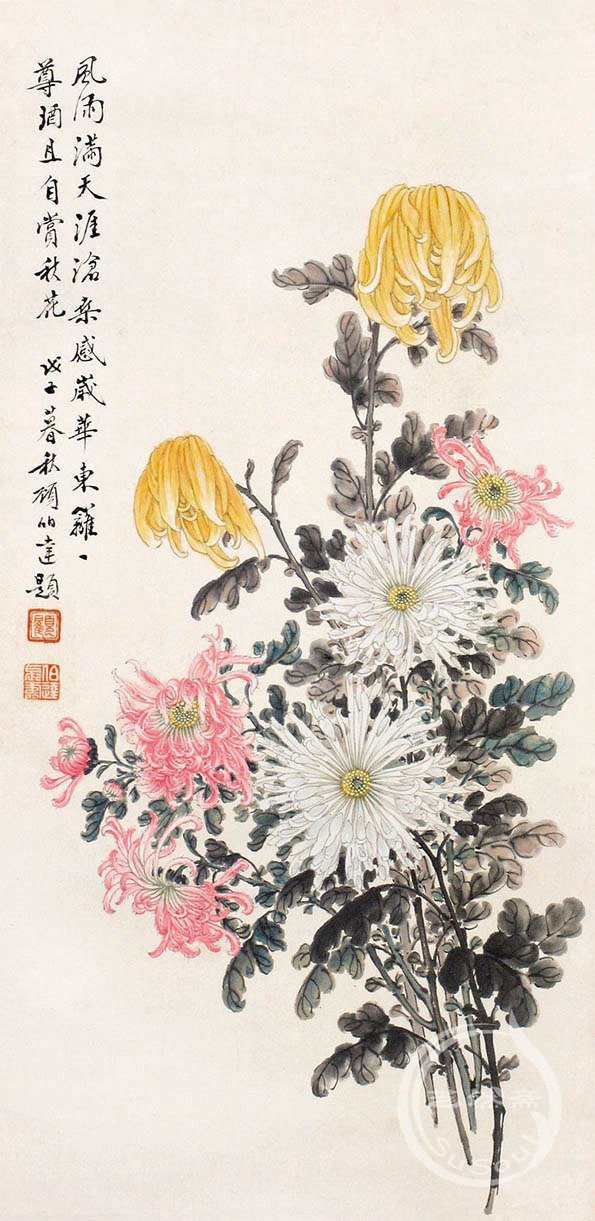 風雨滿天涯滄桒感歲華東籬一
尊酒且自賞秋花 戊子暮秋頋伯達題
SuSoul